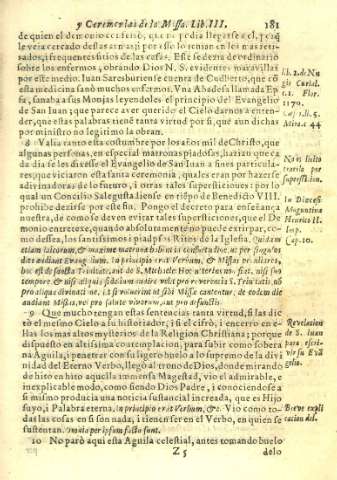 y Ceremonias de la Missa. Lib. III. 181
de quien el demonio confessò, que no podia llegarse a el, porq̃
le veia cercado destas armas; por esso lo tenian en los mas retirados,
i frequentes sitios de las casas. Esto se dezia de ordinario
sobre los enfermos, obrando Dios N. S. evidentes maravillas
por este medio. Iuan Saresburiense cuenta de Cudberto, que cõ
esta medicina sanò muchos enfermos. Una Abadesa llamada
sanaba a sus Monjas leyendoles el principio del Evangelio
de San Iuan; que parece aver querido el Cielo darnos a entender,
que estas palabras tienē tanta virtud por si, que aun dichas
por ministro no legitimo la obran.
8 Valia tanto esta costumbre por los años mil de Christo, que
algunas personas, en especial matronas piadosas, hazian que cada
dia se les dixesse el Evangelio de San Iuan a fines particulares:
que viciaron esta santa ceremonia, quales eran por hazerse
adivinadoras de lo futuro, i otras tales supersticiones: por lo
qual un Concilio Salegustadiense en tiēpo de Benedicto VIII.
prohibe dezirse por este fin. Pongo el decreto para enseñança
nuestra, de como se deven evitar tales supersticiones, que el Demonio
entretexe, quando absolutamente no puede extirpar, como
dessea, los santissimos i piadosissimos Ritos de la Iglesia. Quidam
etiam laicorum, & maxime matronæ habent in consuetudine, ut per singulos
dies audiant Evangelium. In principio erat Verbum, & Missas peculiares,
hoc est de sancta Trinitate, aut de S. Michaele. Hoc ulterius ne fiat, nisi suo
tempore & nisi aliquis fidelium audire velit pro reverentia S. Trinitatis, non
pro aliqua divinatione, & si voluerint ut sibi Missæ cantentur, de eodem die
audiant Missas, vel pro salute vivorum, aut pro defunctis.
9 Que mucho tengan estas sentencias tanta virtud, si las dictò
el mesmo Cielo a su historiador, i si el cifrò, i encerrò en ellas
los mas altos mysterios de la Religion Christiana; porque
dispuesto en altissima contemplacion, para subir como sobera
na Aguila, i penetrar con su ligero buelo lo supremo de la divinidad
del Eterno Verbo, llegò al trono de Dios, donde mirando
de hito en hito aquella immensa Magestad, vio el admirable, e
inexplicable modo, como siendo Dios Padre, i conociendose a
si mesmo producia una noticia sustancial increada, que es Hijo
suyo, i Palabra eterna, In principio erat Verbum, &c. Vio como todas
las cosas en si son nada, i tienen ser en el Verbo, en quien se
sustentan. Omnia per ipsum facta sunt.
10 No parò aqui esta Aguila celestial, antes tomando buelo
Z 5 delo
lib. 2. de Nu
gis Curial.
c. 1. Flor.
1170.
lib. 5.
44
superstición.
In Diœcesi
Moguntina
Henrico II.
Imp.
Cap. 10.
Revelacion
de S. Iuan
para escri-
vir su Evã
gelio.
Breve expli
cacion del.